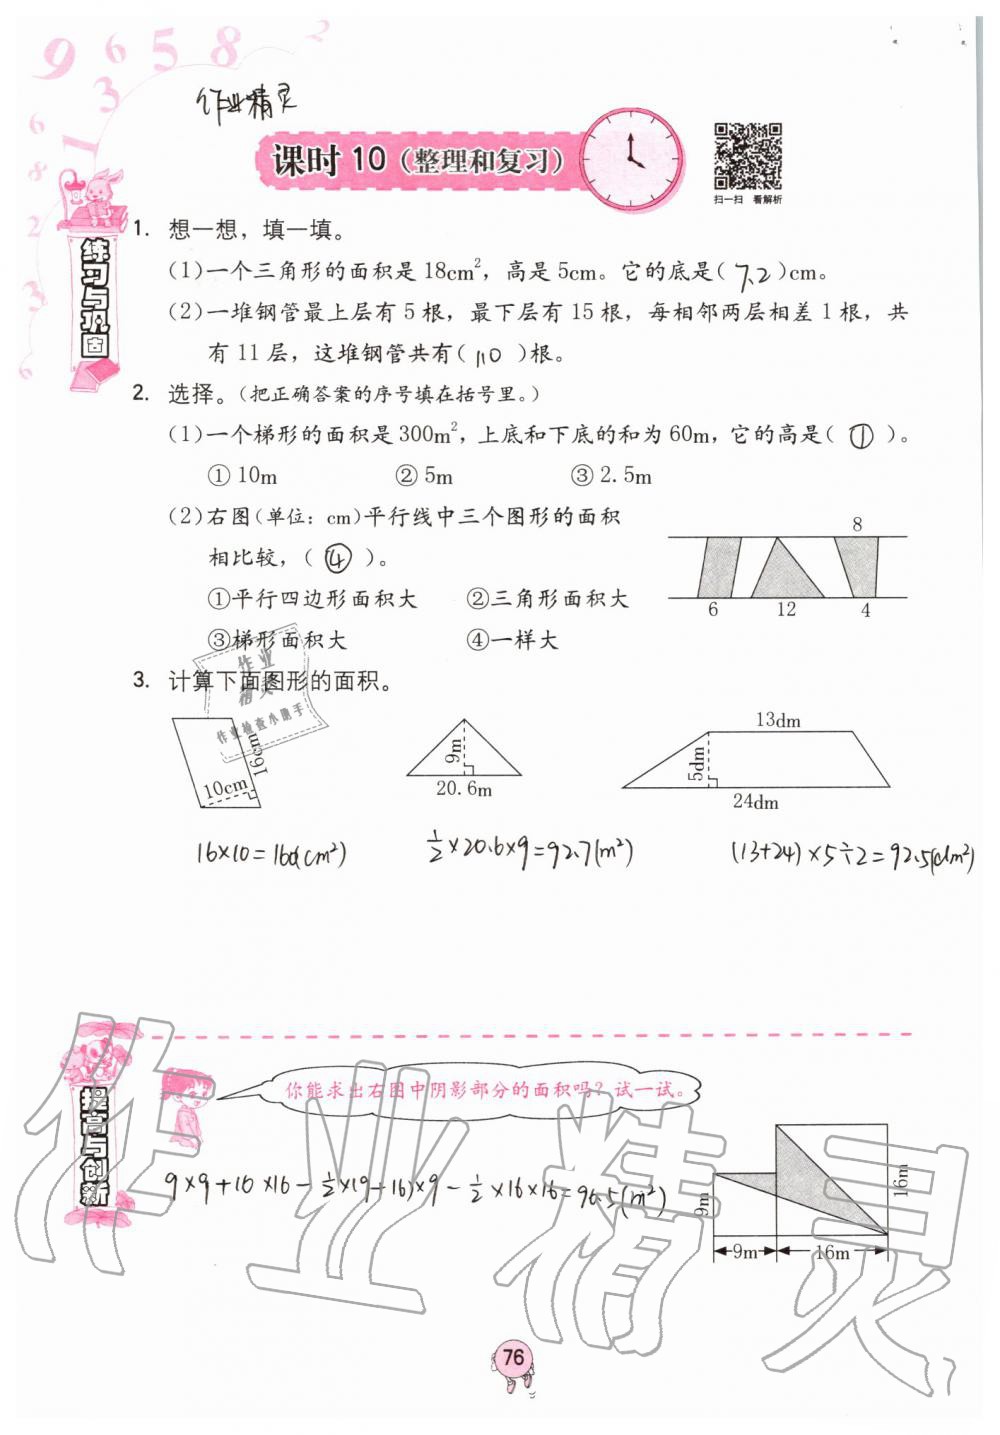 9 6 5 8 2
作业精灵
课时 10（整理和复习）
扫一扫 看解析
练习与巩固
1. 想一想，填一填。
(1)一个三角形的面积是18cm²，高是5cm。它的底是( 7.2 )cm。
(2)一堆钢管最上层有5根，最下层有15根，每相邻两层相差1根，共
有11层，这堆钢管共有( 110 )根。
2. 选择。（把正确答案的序号填在括号里。）
(1)一个梯形的面积是300m²，上底和下底的和为60m，它的高是( ① )。
①10m ②5m ③2.5m
(2)右图(单位：cm)平行线中三个图形的面积
相比较，( ④ )。
①平行四边形面积大 ②三角形面积大
③梯形面积大 ④一样大
8
6 12 4
3. 计算下面图形的面积。
作业
精灵
作业检查小助手
10cm 16cm
9m
20.6m
13dm
5dm
24dm
16×10=160(cm²) ½×20.6×9=92.7(m²) (13+24)×5÷2=92.5(dm²)
提高与创新
你能求出右图中阴影部分的面积吗？试一试。
9×9+16×16-½×(9+16)×9-½×16×16=96.5(m²)
9m 16m
9m 16m
作业精灵
76